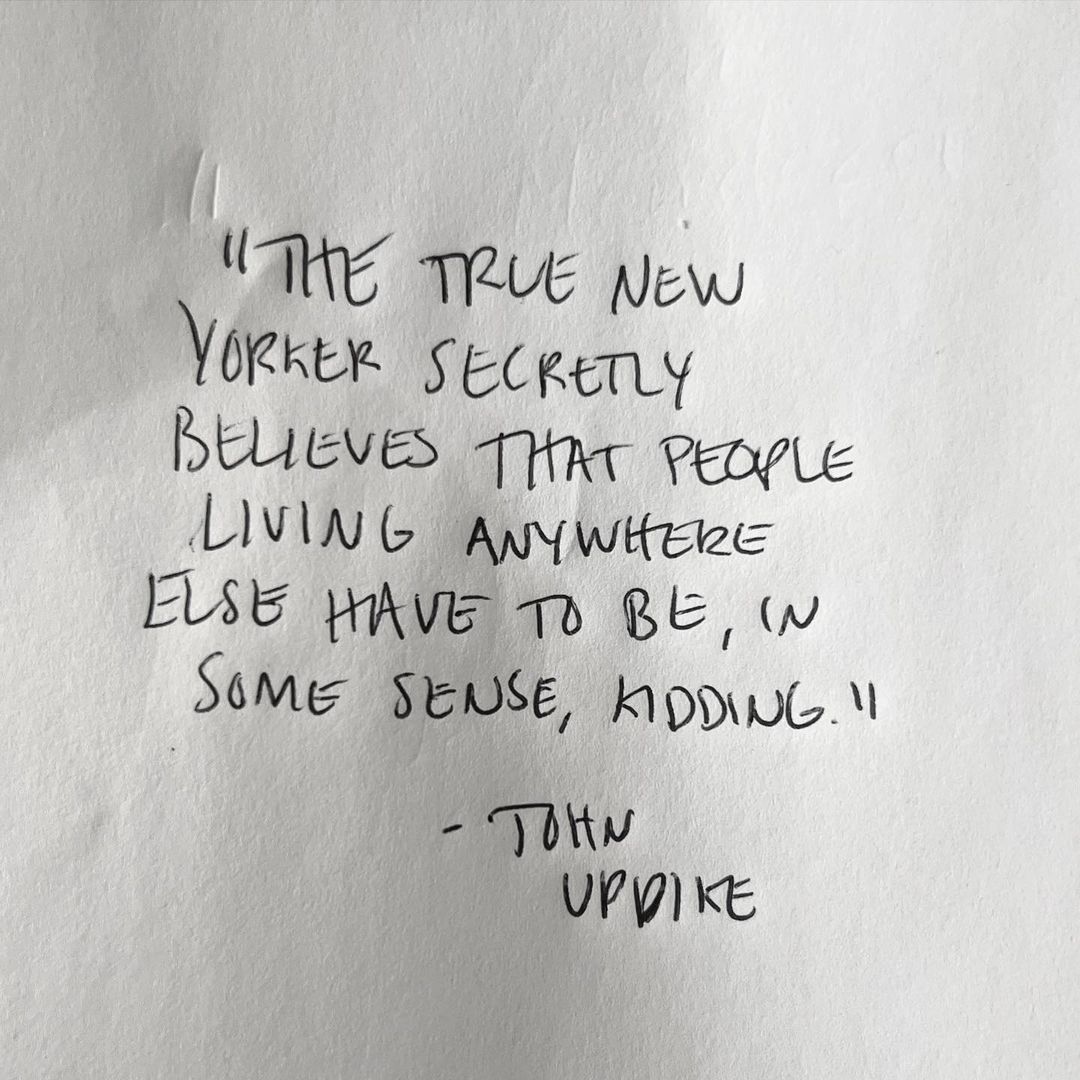 "THE TRUE NEW
YORKER SECRETLY
BELIEVES THAT PEOPLE
LIVING ANYWHERE
ELSE HAVE TO BE, IN
SOME SENSE, KIDDING."
- JOHN
UPDIKE